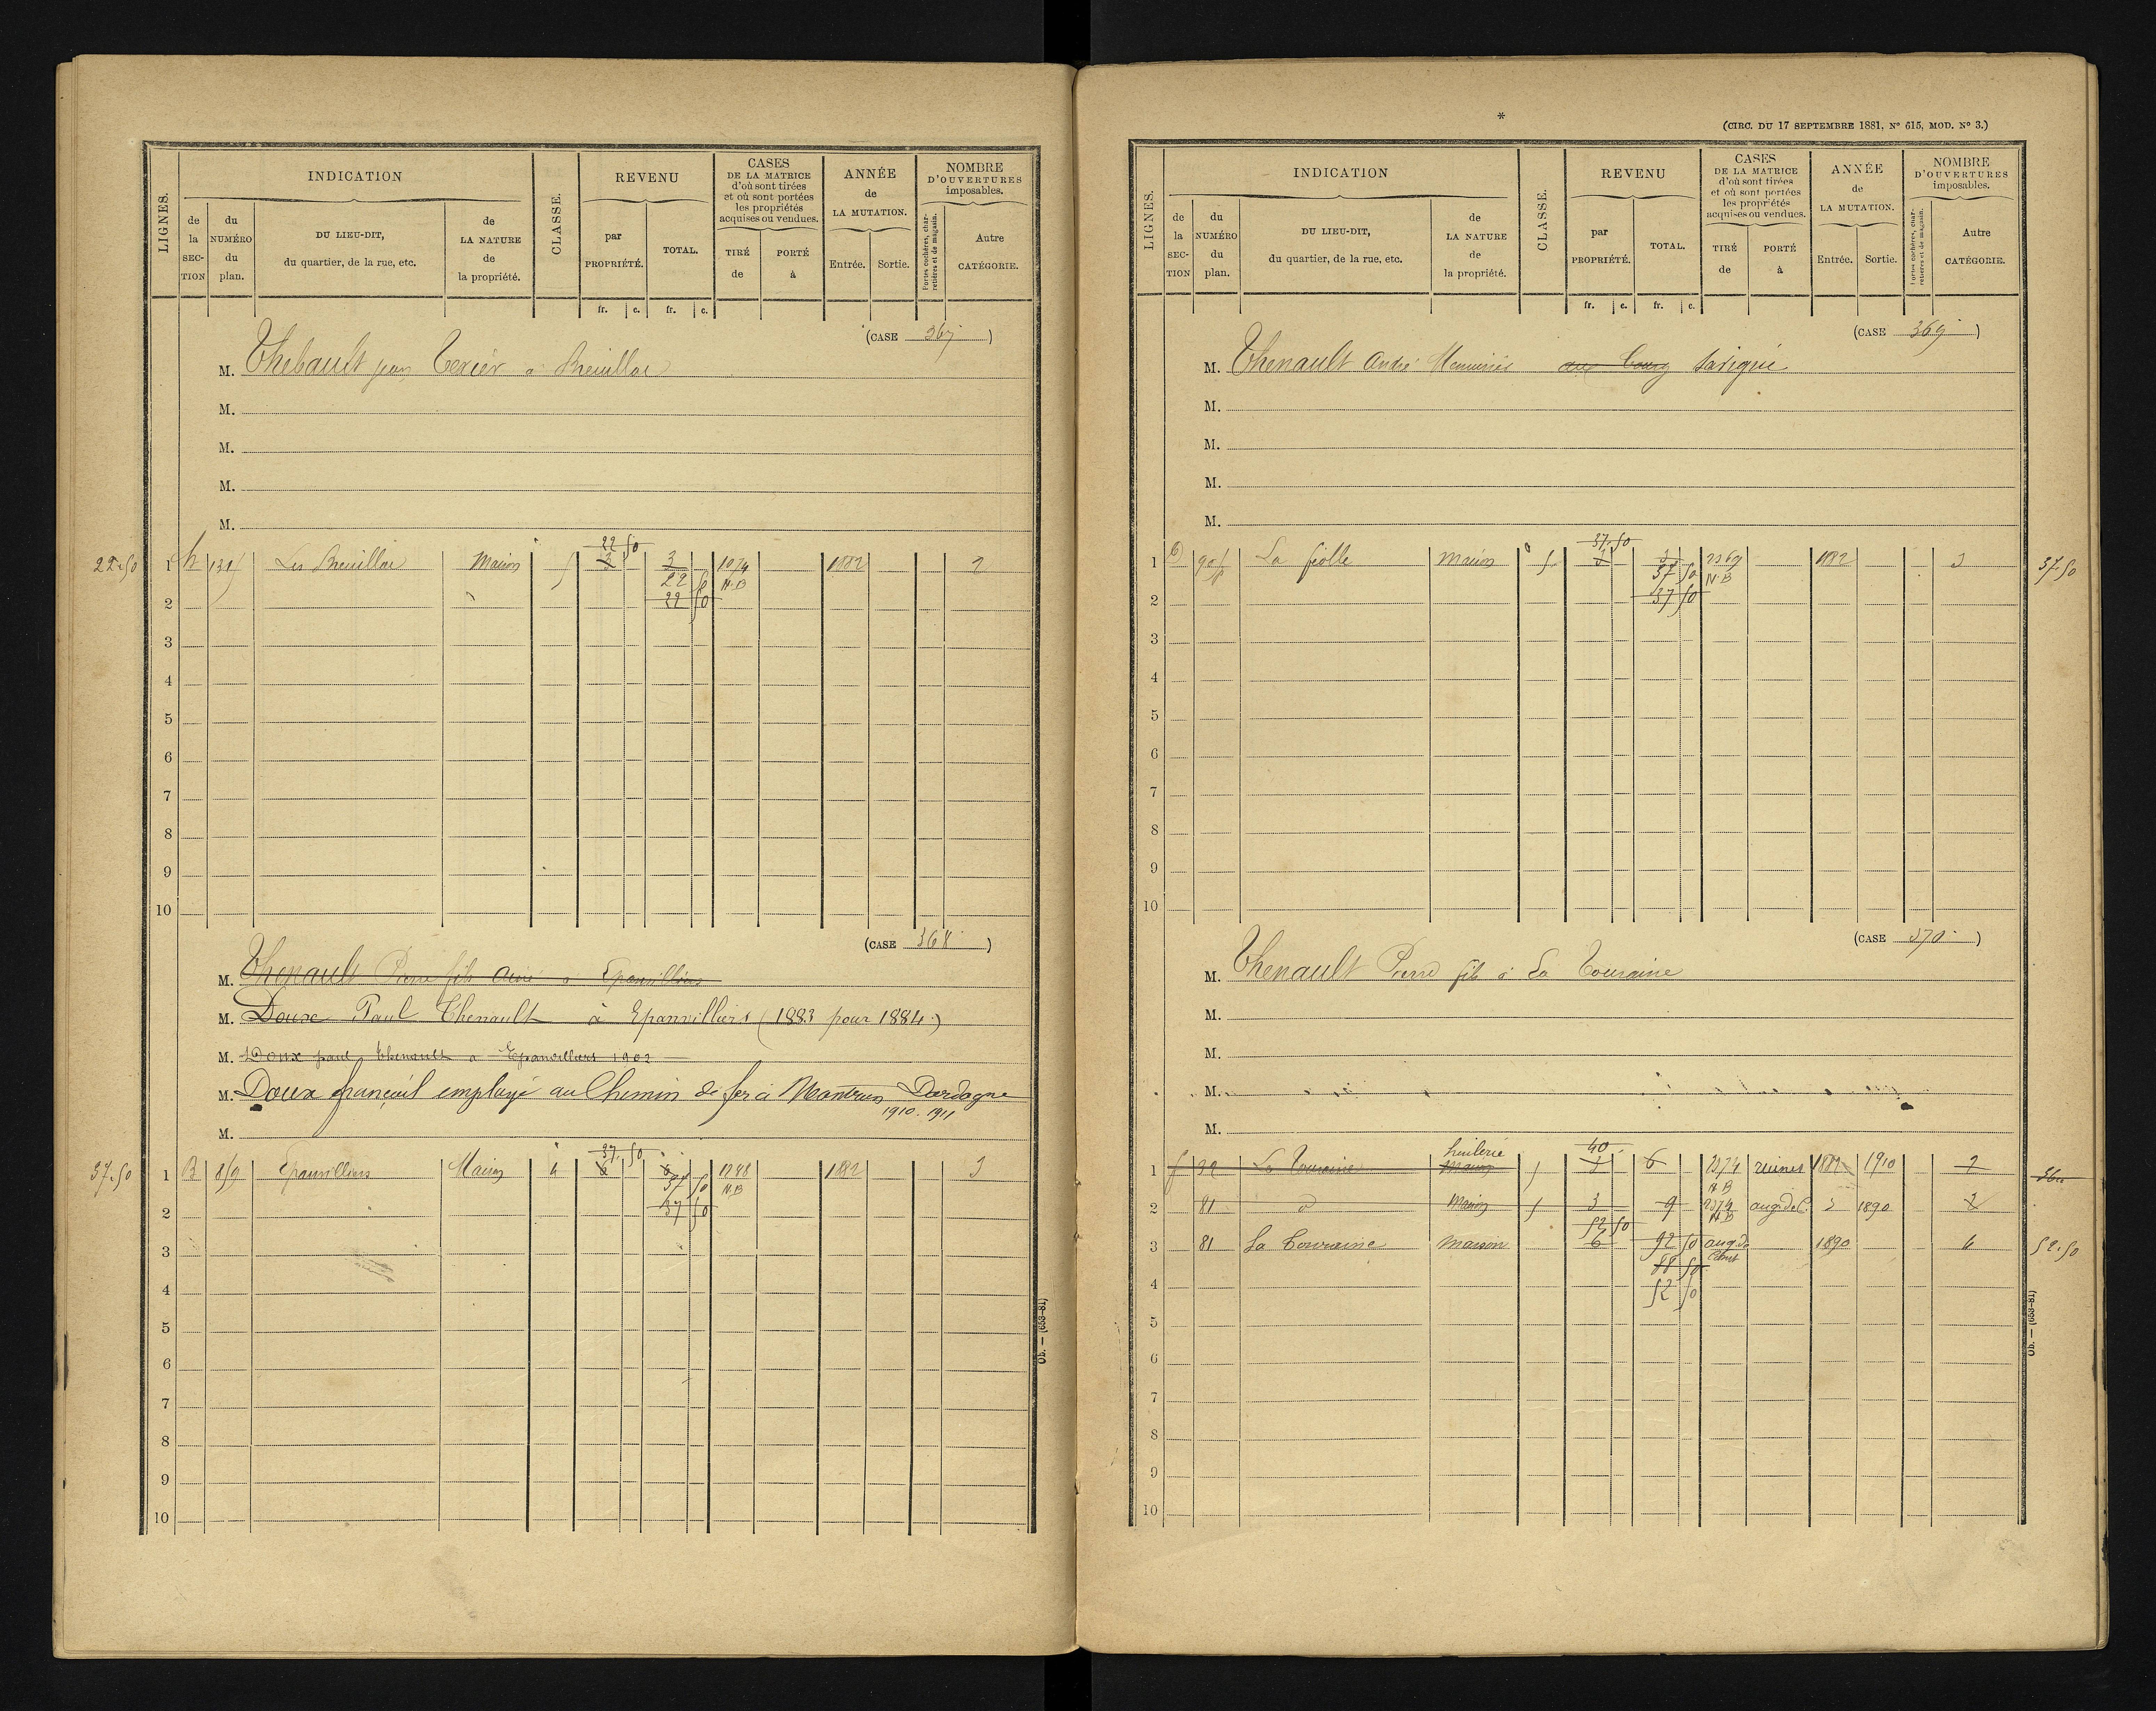 LIGNES.
INDICATION
de la SECTION
du NUMÉRO du plan.
DU LIEU-DIT, du quartier, de la rue, etc.
de LA NATURE de la propriété.
CLASSE.
REVENU
par PROPRIÉTÉ.
TOTAL.
fr. c. fr. c.
CASES DE LA MATRICE d'où sont tirées et où sont portées les propriétés acquises ou vendues.
TIRÉ de
PORTÉ à
ANNÉE de LA MUTATION.
Entrée. Sortie.
NOMBRE D'OUVERTURES imposables.
Portes cochères, charretières et de magasin.
Autre CATÉGORIE.
(CASE 367)
M. Thebault jean Texier a Breuillac
M.
M.
M.
M.
22 50
22.50 1 131 Maison 5 3 3 1074 1882 2
22 50 N.B
2 22 50
3
4
5
6
7
8
9
10
(CASE 368)
M. Thenault Pierre fils a Epanvilliers
M. Doux Paul Thenault à Epanvilliers (1883 pour 1884)
M. Doux paul Thenault a Epanvilliers 1902
M. Doux employé au Chemin de fer à Dordogne
1910. 1911
M.
37. 50
37.50 1 B 859 Epanvilliers Maison 4 6 6 1248 1882 3
37 50 N.B
2 37 50
3
4
5
6
7
8
9
10
Ob. — (653-81)
*
(CIRC. DU 17 SEPTEMBRE 1881, N° 615, MOD. N° 3.)
LIGNES.
INDICATION
de la SECTION
du NUMÉRO du plan.
DU LIEU-DIT, du quartier, de la rue, etc.
de LA NATURE de la propriété.
CLASSE.
REVENU
par PROPRIÉTÉ.
TOTAL.
fr. c. fr. c.
CASES DE LA MATRICE d'où sont tirées et où sont portées les propriétés acquises ou vendues.
TIRÉ de
PORTÉ à
ANNÉE de LA MUTATION.
Entrée. Sortie.
NOMBRE D'OUVERTURES imposables.
Portes cochères, charretières et de magasin.
Autre CATÉGORIE.
(CASE 369)
M. Thenault André Menuisier au bourg Savigné
M.
M.
M.
M.
37.50
1 La fiolle Maison 5 3 3 2369 1882 3 37.50
37 50 N.B
2 37 50
3
4
5
6
7
8
9
10
(CASE 370)
M. Thenault Pierre fils à La Touraine
M.
M.
M.
M.
huilerie 40
1 f 32 La Touraine Maison 5 3 6 2374 ruines 1882 1910 2
N.B
2 81 d Maison 5 3 9 2374 aug. de C. 1890 2
N.B
52 50
3 81 La Touraine Maison 6 92 50 aug. de Const 1890 6 52.50
88 50
4 52 50
5
6
7
8
9
10
Ob. — (653-81)